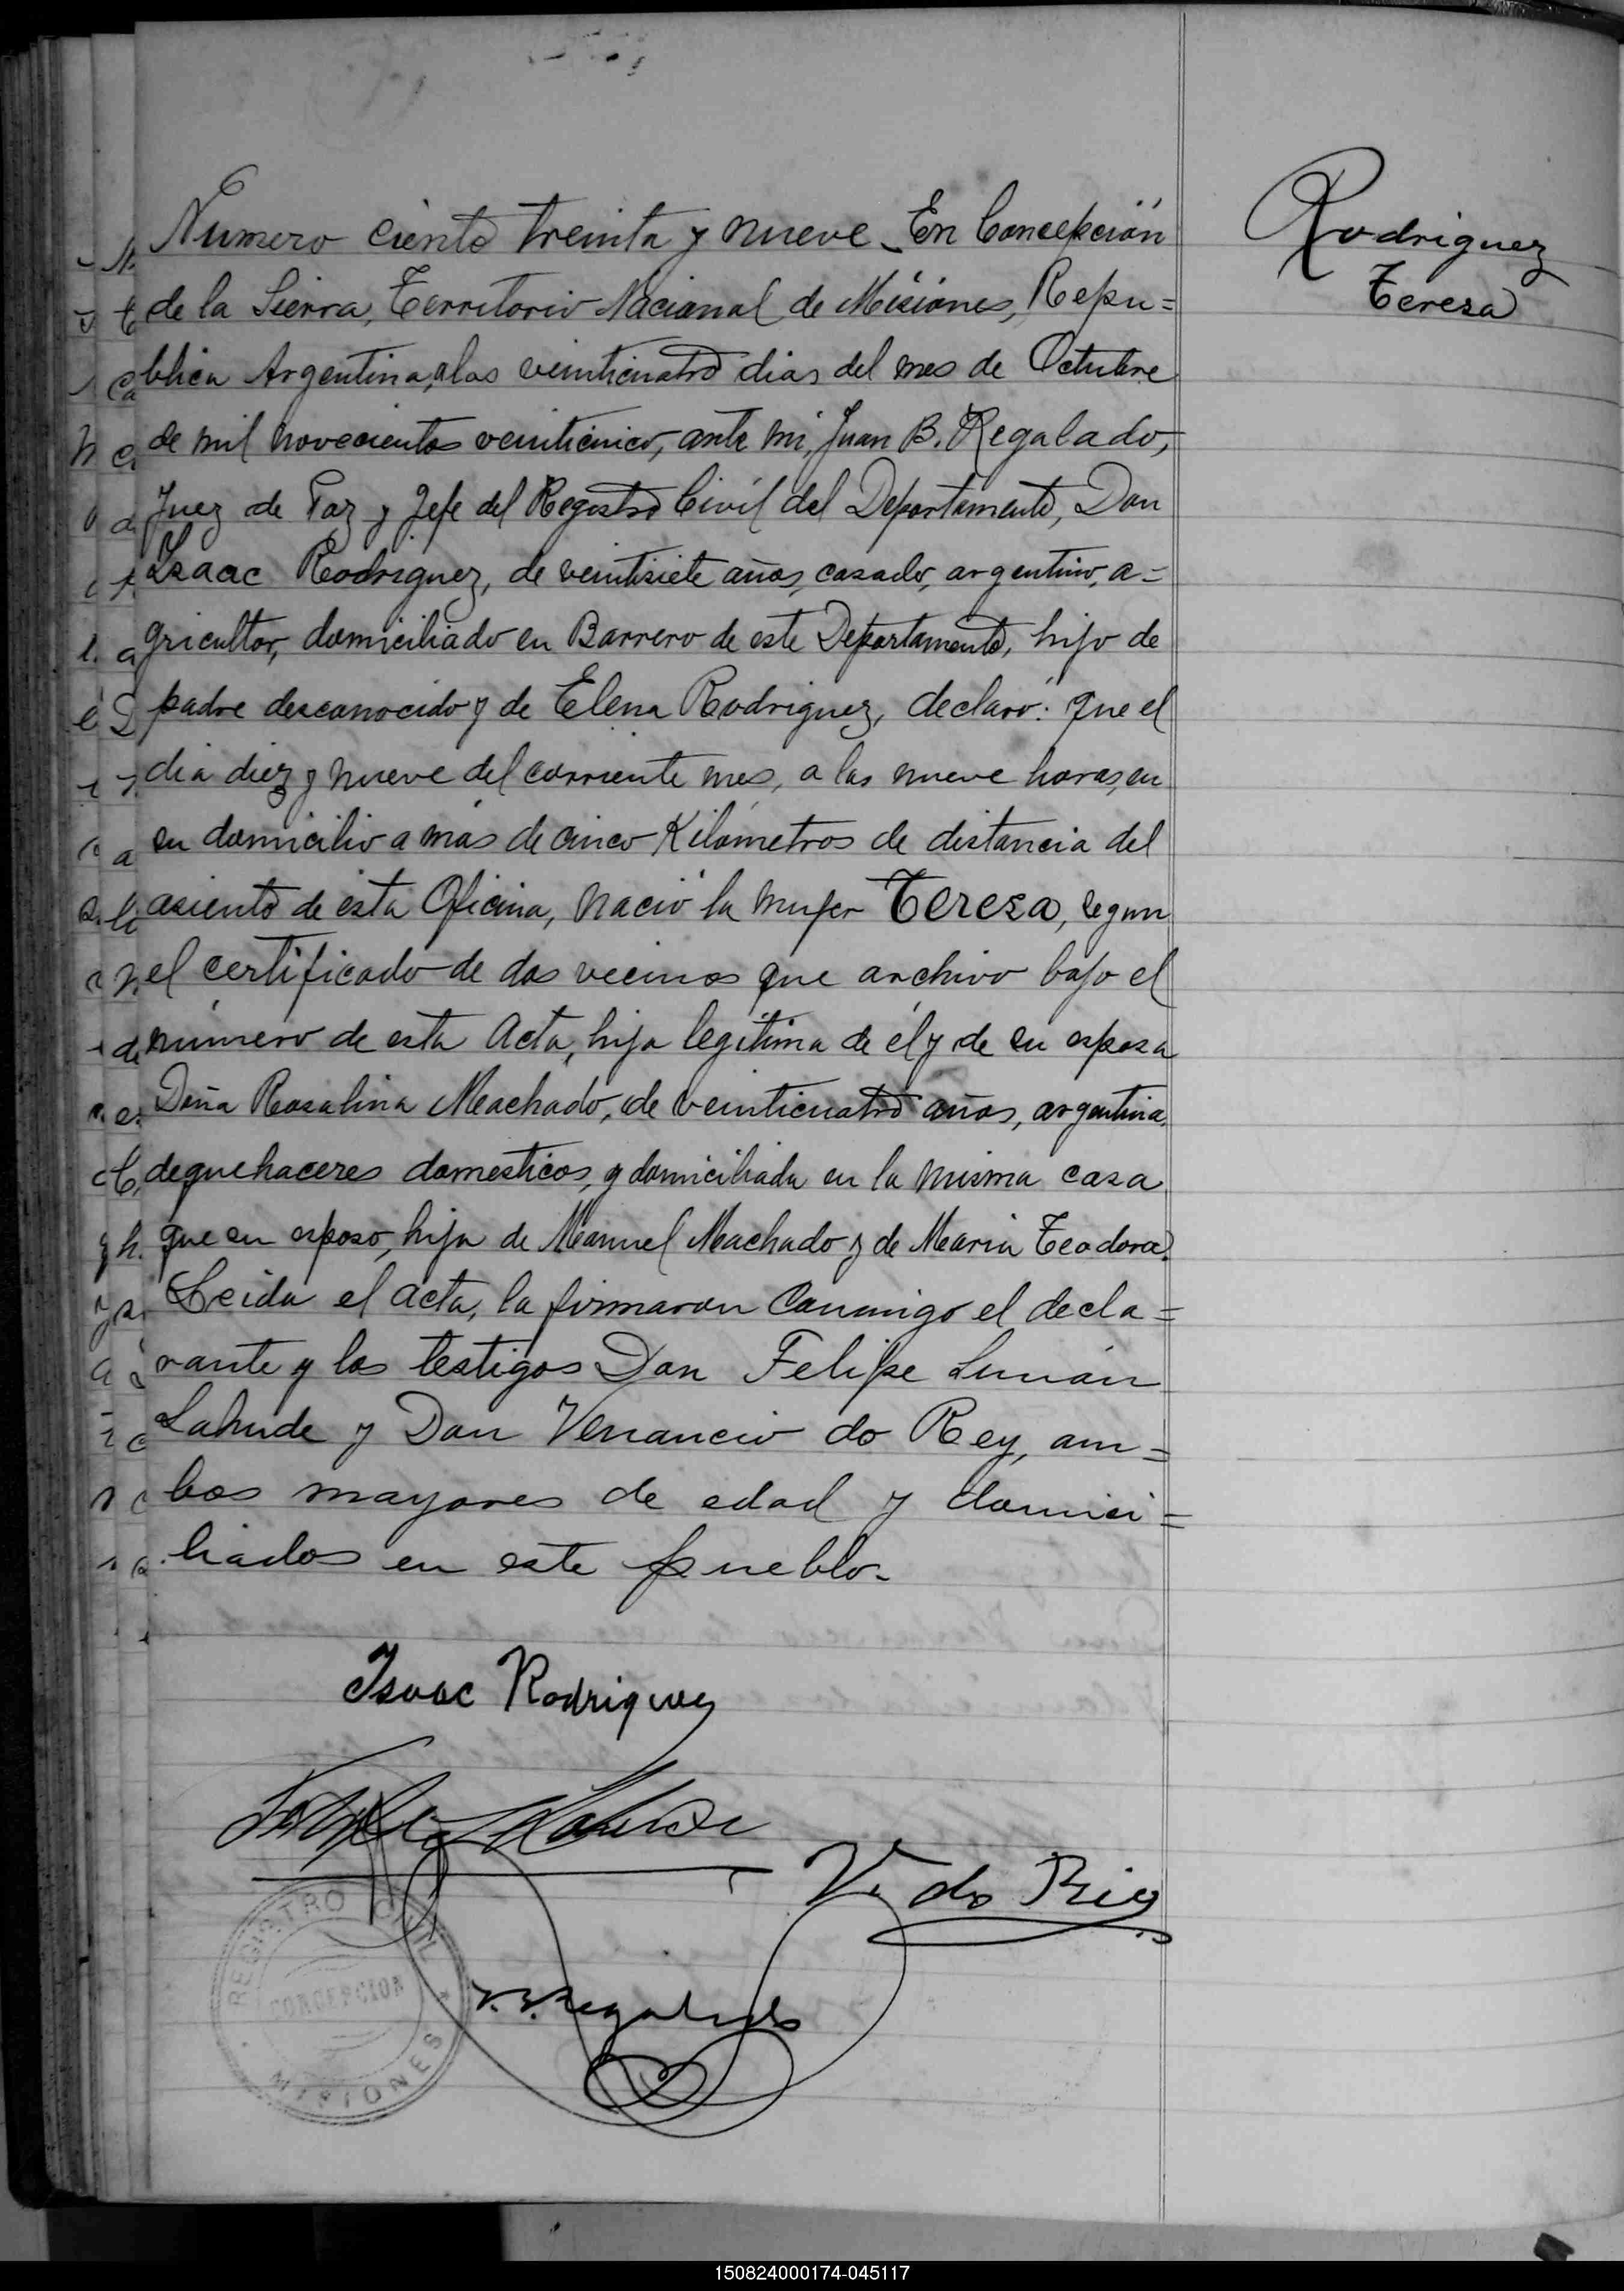 Numero ciento treinta y nueve - En Concepción
de la Sierra, Territorio Nacional de Misiones, Repu=
blica Argentina, a los veinticuatro dias del mes de Octubre
de mil novecientos veinticinco, ante mi, Juan B. Regalado,
Juez de Paz y Jefe del Registro Civil del Departamento, Don
Isaac Rodriguez, de veintisiete años, casado, argentino, a=
gricultor, domiciliado en Barrero de este Departamento, hijo de
padre desconocido y de Elena Rodriguez, declaró: que el
dia diez y nueve del corriente mes, a las nueve horas, en
su domicilio a más de cinco Kilometros de distancia del
asiento de esta Oficina, nació la mujer Teresa, segun
el certificado de dos vecinos que archivo bajo el
número de esta Acta, hija legitima de él y de su esposa
Doña Rosalina Machado, de veinticuatro años, argentina,
de quehaceres domesticos, y domiciliada en la misma casa
que su esposo, hija de Manuel Machado y de Maria Teodora.
Leida el acta, la firmaron conmigo el decla=
rante y los testigos Don Felipe
Lahude y Don Venancio do Rey, am=
bos mayores de edad y domici=
liados en este pueblo.
Rodriguez
Teresa
Isaac Rodriguez
V. do Rey
REGISTRO CIVIL
CONCEPCION
MISIONES
150824000174-045117